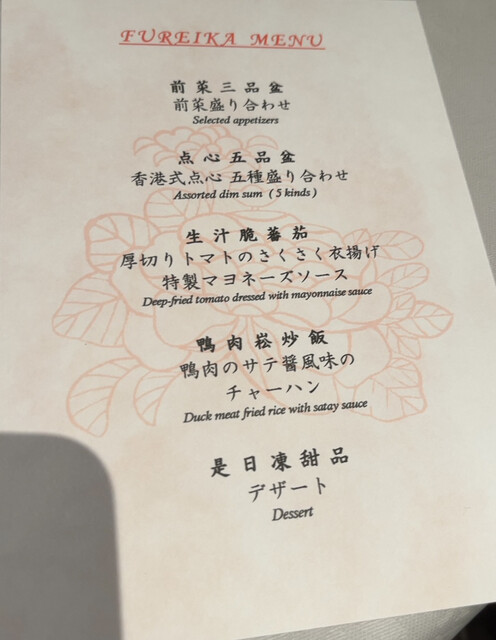 FUREIKA MENU
前菜三品盆
前菜盛り合わせ
Selected appetizers
点心五品盆
香港式点心 五種盛り合わせ
Assorted dim sum ( 5 kinds )
生汁脆蕃茄
厚切りトマトのさくさく衣揚げ
特製マヨネーズソース
Deep-fried tomato dressed with mayonnaise sauce
鴨肉崧炒飯
鴨肉のサテ醤風味の
チャーハン
Duck meat fried rice with satay sauce
是日凍甜品
デザート
Dessert